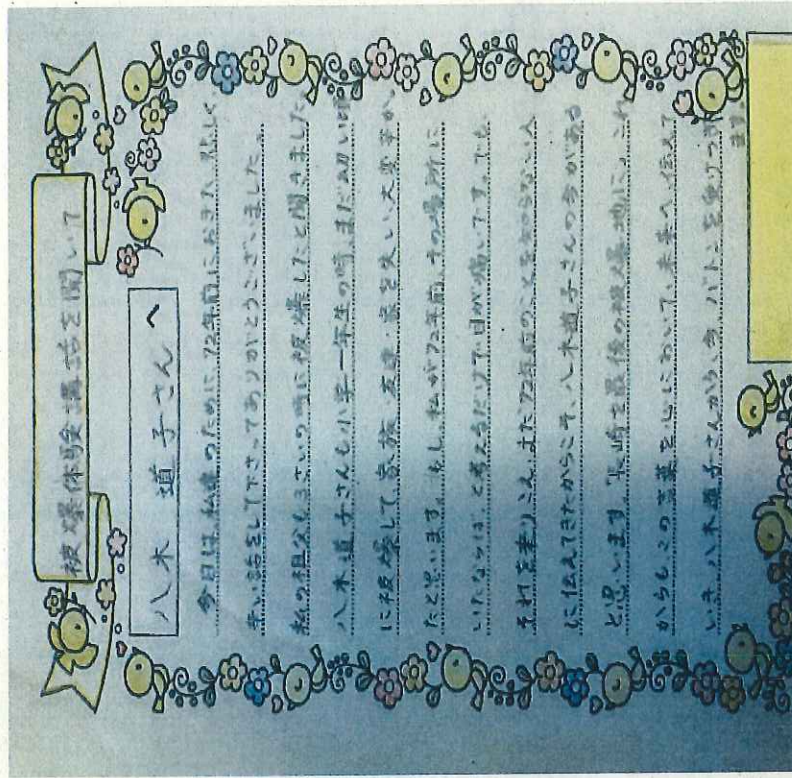 被爆体験講話を聞いて
八木 道子さん へ
今日は、私達のために72年前におきた悲しく
辛い話をして下さってありがとうございました。
私の祖父も3さいの時に被爆したと聞きました
八木道子さんも小学一年生の時、まだ幼い頃
に被爆して、家族・友達・家を失い、大変
たと思います。もし、私が72年前、その場所に
いたならば、と考えるだけで 胸が痛いです。でも、
それを乗りこえ、また72年前のことを知らない人
に伝えてきたからこそ、八木道子さんの今がある
と思います。"長崎を最後の被爆地に。これ
からもこの言葉を心において、未来へ伝えて
いき、八木道子さんから、今、バトンを受けつ
ます。